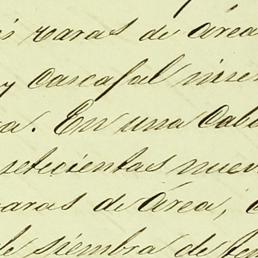 varas de área
y cascajal inse
a. En una Caba
setecientas nueve
varas de área,
de siembra de